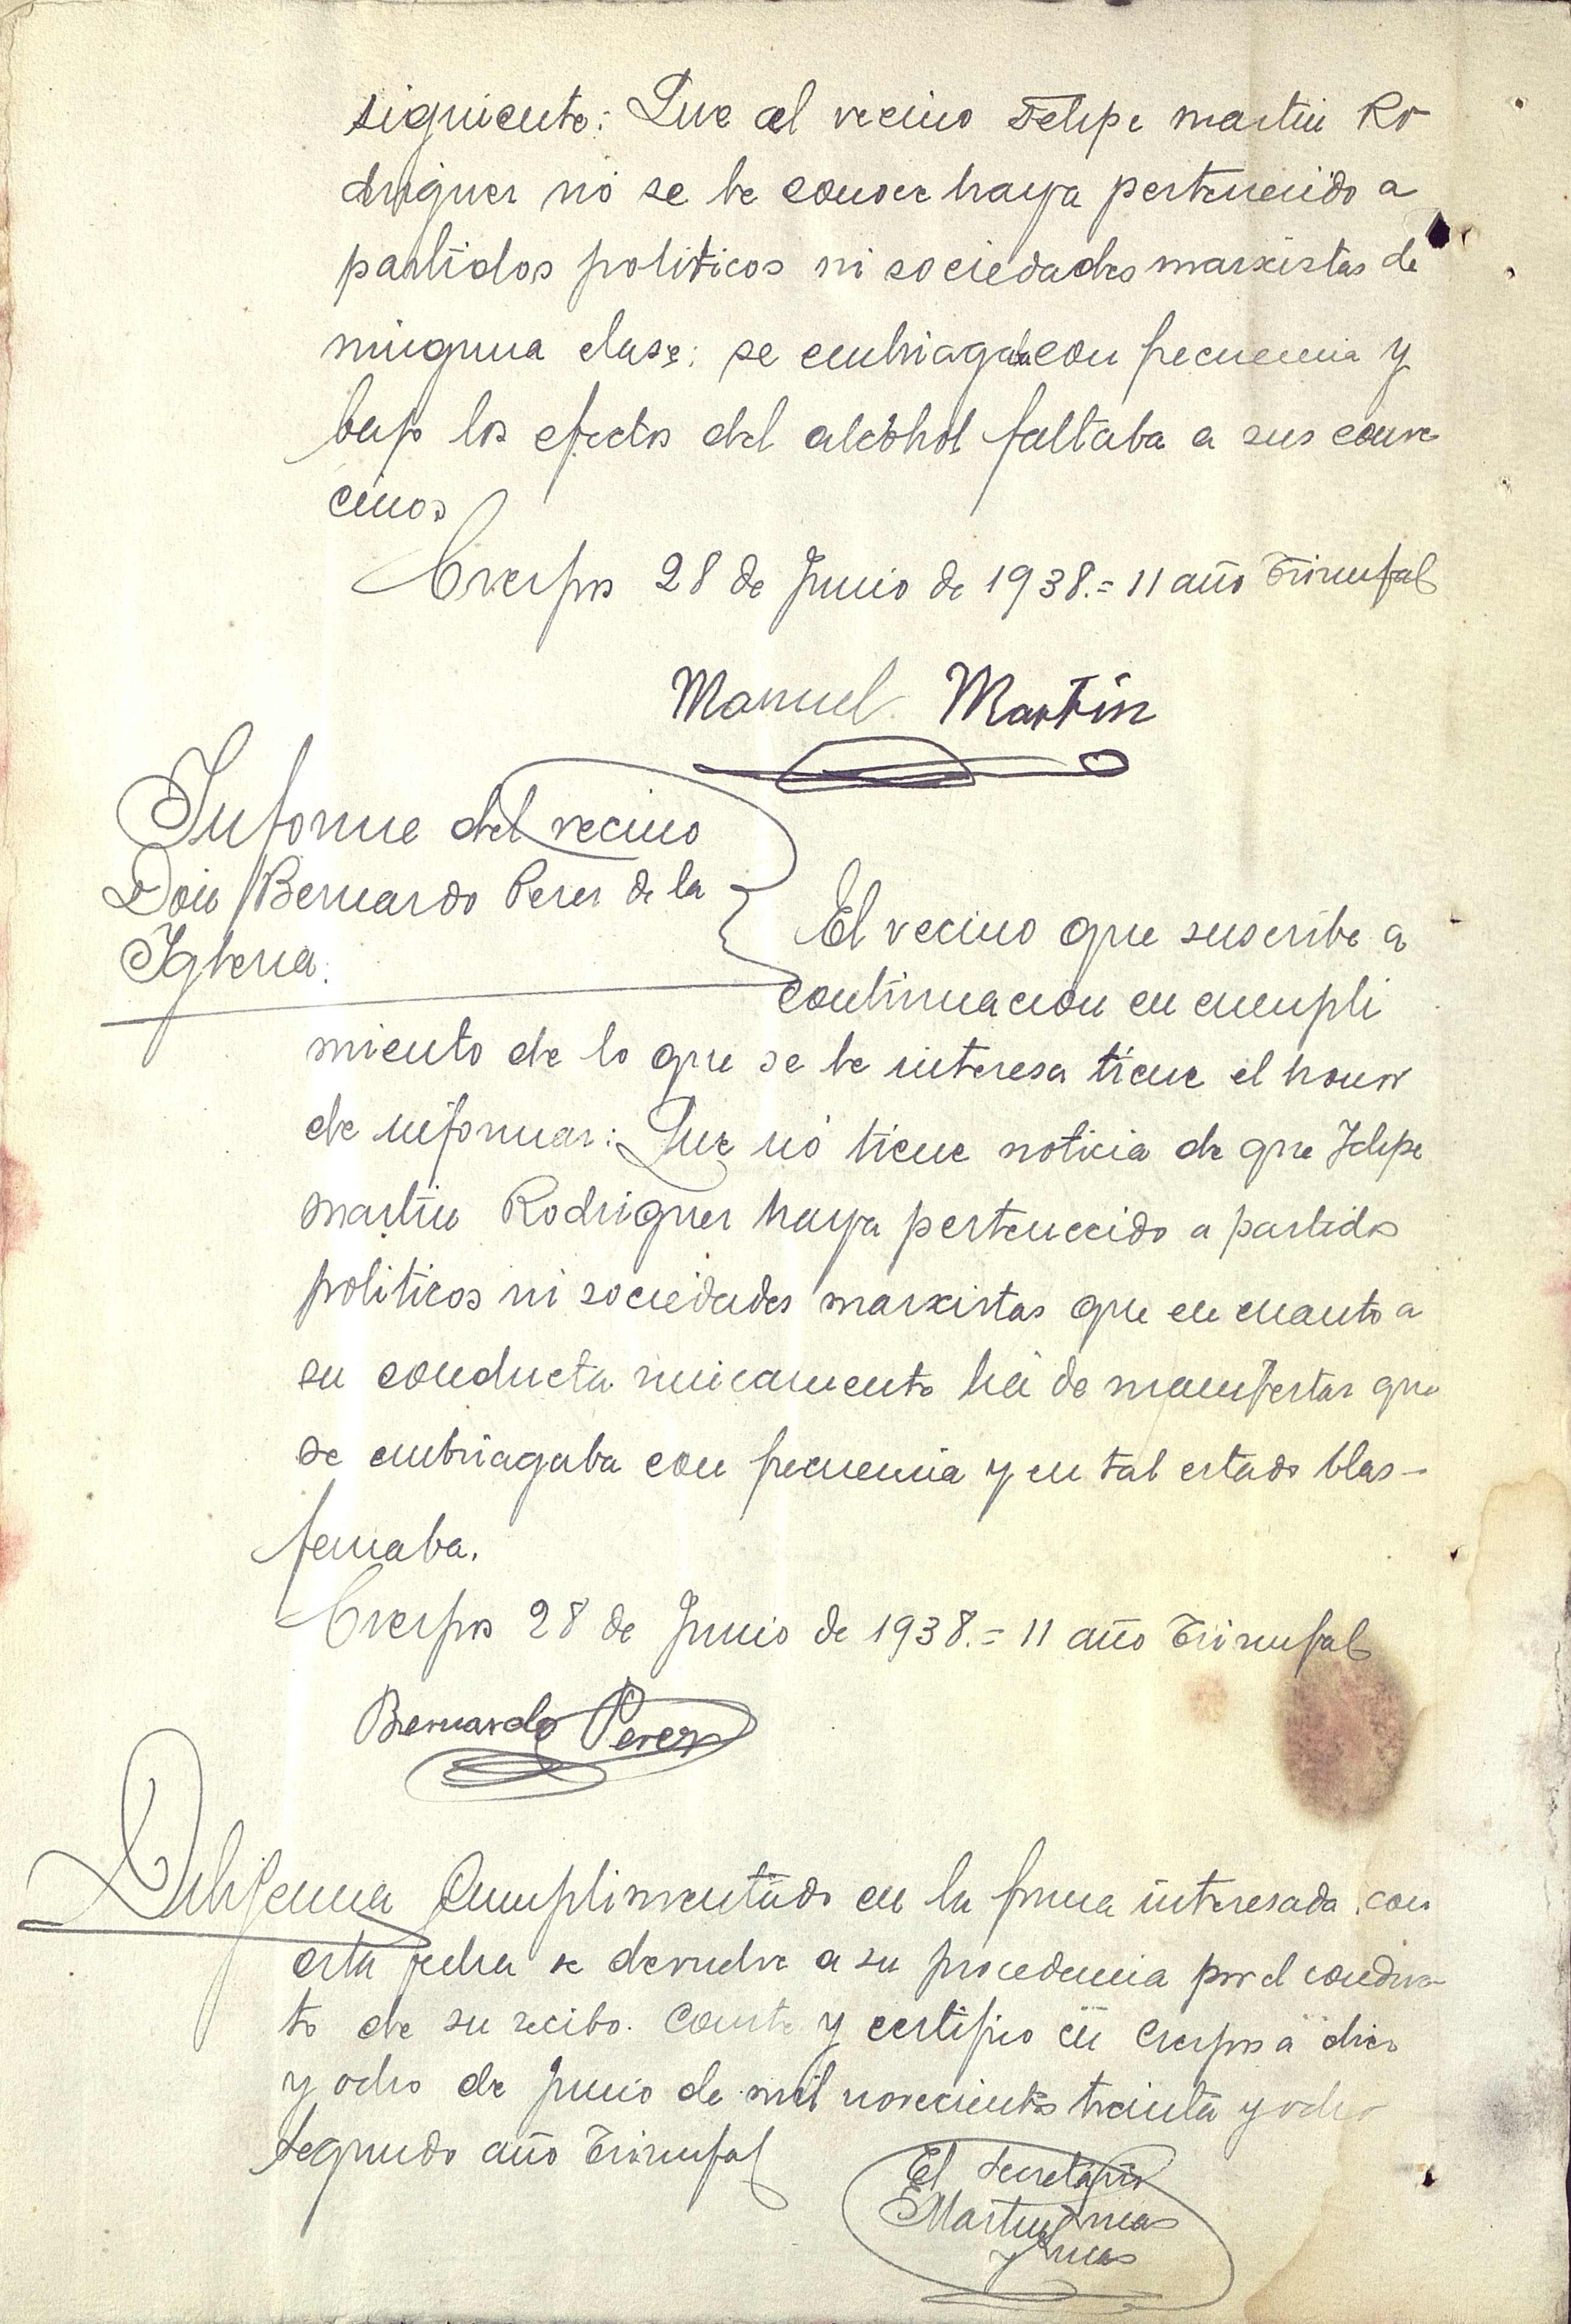 siguiente: Que al vecino Felipe martin Ro
driguez nó se le conoce haya pertenecido a
partidos politicos ni sociedades marxistas de
ninguna clase; se embriagaba con frecuencia y
bajo los efectos del alcohol faltaba a sus conve
cinos
Crespos 28 de Junio de 1938.= 11 año Triunfal
Manuel Martín
Informe del vecino
Don Bernardo Perez de la
Iglesia.
El vecino que suscribe a
continuacion en cumpli
miento de lo que se le interesa tiene el honor
de informar: Que nó tiene noticia de que Felipe
martin Rodriguez haya pertenecido a partidos
politicos ni sociedades marxistas que en cuanto a
su conducta unicamente há de manifestar que
se embriagaba con frecuencia y en tal estado blas-
femaba.
Crespos 28 de Junio de 1938.= 11 año Triunfal
Bernardo Perez
Diligencia Cumplimentado en la forma interesada con
esta fecha se devuelve a su procedencia por el conduc
to de su recibo. Conste y certifico en Crespos a diez
y ocho de Junio de mil novecientos treinta y ocho
segundo año Triunfal
El Secretario